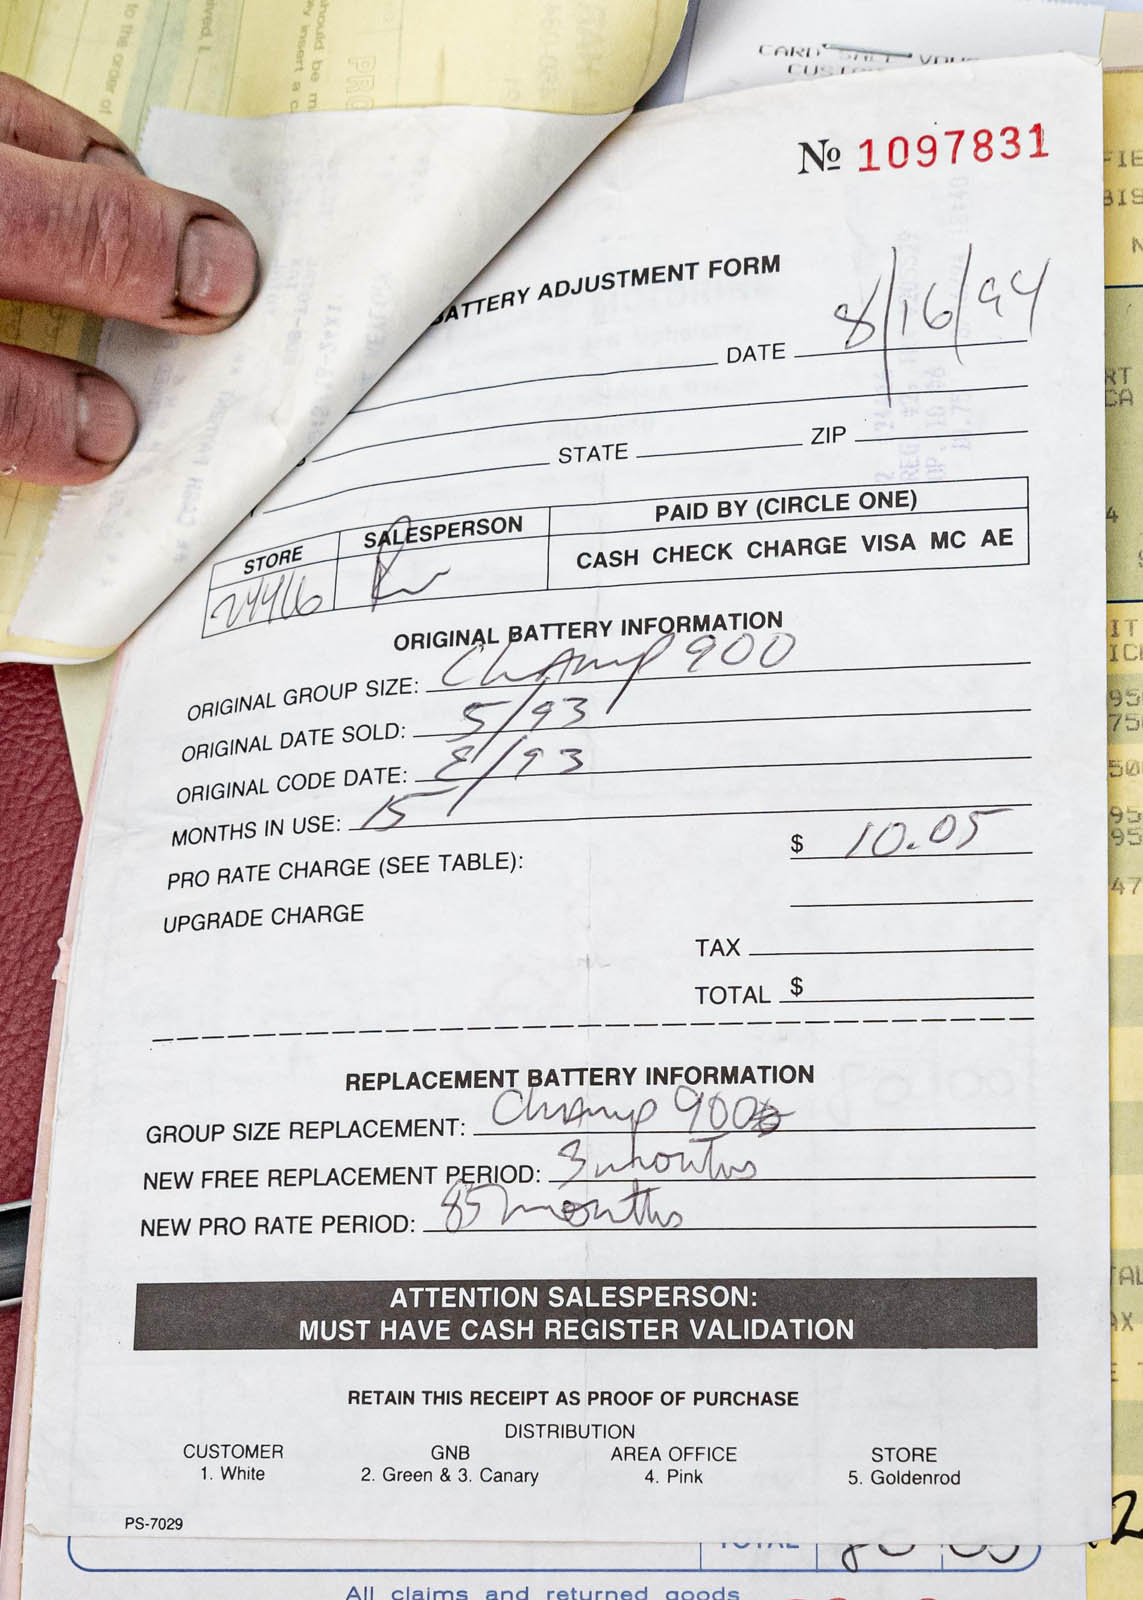 to the order of
should be m
insert a c
CARD SALE
№ 1097831
BATTERY ADJUSTMENT FORM
DATE 8/16/94
STATE ZIP
STORE SALESPERSON PAID BY (CIRCLE ONE)
24416 CASH CHECK CHARGE VISA MC AE
ORIGINAL BATTERY INFORMATION
ORIGINAL GROUP SIZE: Champ 900
ORIGINAL DATE SOLD: 5/93
ORIGINAL CODE DATE: 2/93
MONTHS IN USE: 15
PRO RATE CHARGE (SEE TABLE): $ 10.05
UPGRADE CHARGE
TAX
TOTAL $
REPLACEMENT BATTERY INFORMATION
GROUP SIZE REPLACEMENT: Champ 900
NEW FREE REPLACEMENT PERIOD: 3 months
NEW PRO RATE PERIOD: 85 months
ATTENTION SALESPERSON:
MUST HAVE CASH REGISTER VALIDATION
RETAIN THIS RECEIPT AS PROOF OF PURCHASE
DISTRIBUTION
CUSTOMER GNB AREA OFFICE STORE
1. White 2. Green & 3. Canary 4. Pink 5. Goldenrod
PS-7029
TOTAL
All claims and returned goods